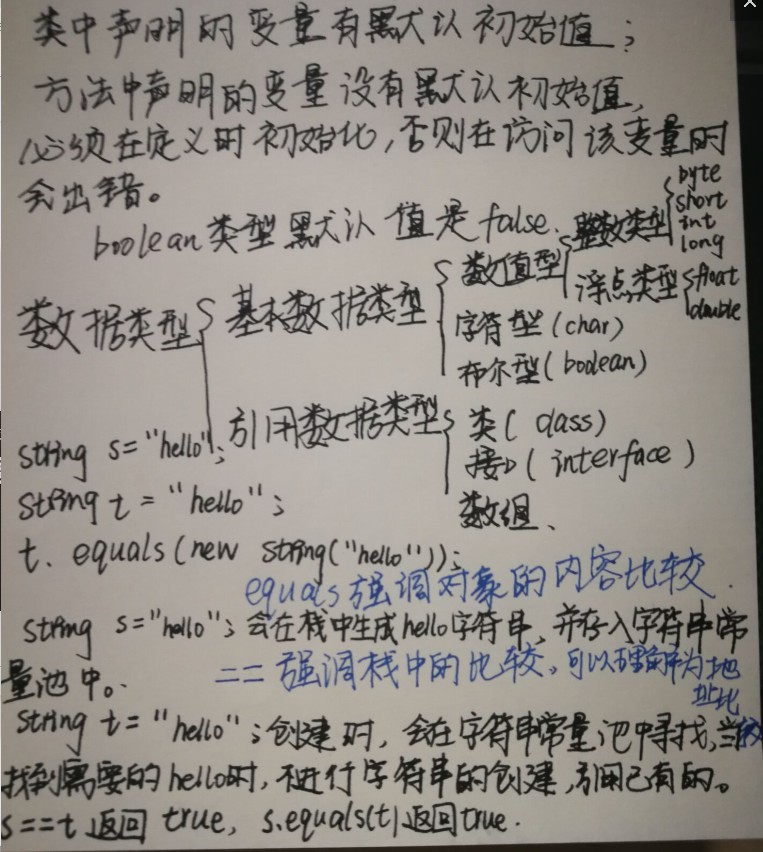 类中声明的变量有默认初始值；
方法中声明的变量没有默认初始值，
必须在定义时初始化，否则在访问该变量时
会出错。
boolean类型默认值是false.
数据类型
基本数据类型
数值型
整数类型
byte
short
int
long
浮点类型
float
double
字符型(char)
布尔型(boolean)
引用数据类型
类(class)
接口(interface)
数组、
string s="hello";
string t="hello";
t.equals(new string("hello"));
equals强调对象的内容比较.
string s="hello";会在栈中生成hello字符串，并存入字符串常
量池中。
==强调栈中的比较，可以理解为地
址比较
string t="hello";创建时，会在字符串常量池中寻找，当
找到需要的hello时，不进行字符串的创建，引用已有的。
s==t返回true，s.equals(t)返回true.